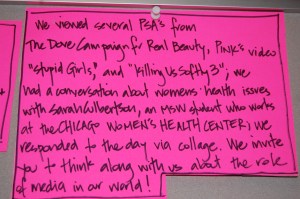 We viewed several PSA's from
The Dove Campaign for Real Beauty, Pink's video
"Stupid Girls," and "Killing Us Softly 3"; we
had a conversation about womens' health issues
with Sarah Culbertson, an MSW student who works
at the CHICAGO WOMEN'S HEALTH CENTER; we
responded to the day via collage. We invite
you to think along with us about the role
of media in our world!